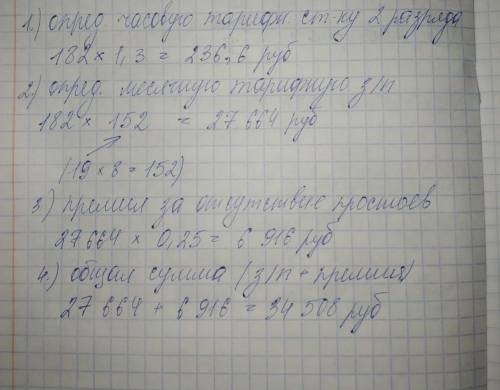 1.) опред часовую тарифн. ст-ку 2 разряда
182 × 1,3 = 236,6 руб
2) опред. месячную тарифную з/п
182 × 152 = 27 664 руб
(19 × 8 = 152)
3) премия за отсутствие простоев
27 664 × 0,25 = 6 916 руб
4.) общая сумма (з/п + премия)
27 664 + 6 916 = 34 508 руб